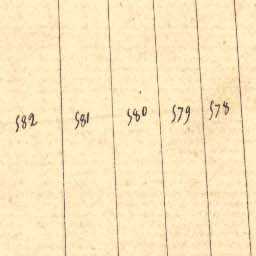 582 581 580 579 578